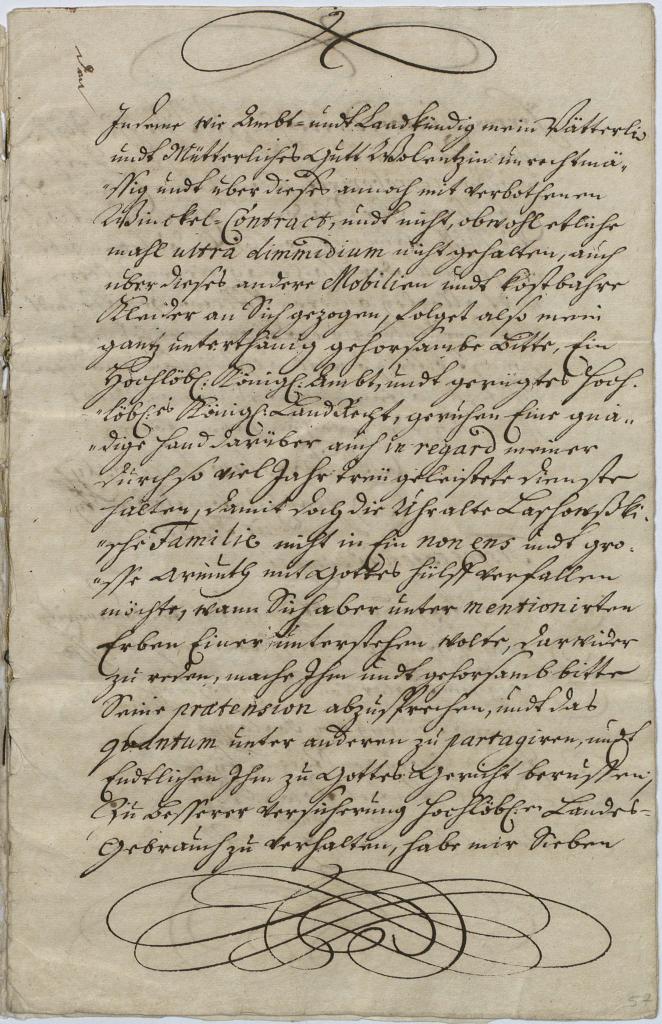 Indeme wie Ambt- undt Landkündig mein Vätterlis
undt Mütterliches Gutt Wolentzin unrechtmä-
ssig undt über dieses annoch mit verbothenen
Winckel-Contract, undt nicht, obwohl etliche
mahl ultra dimmidium nicht gehalten, auch
über dieses andere Mobilien undt kostbahre
Kleider an Sich gezogen, folget also mein
gantz unterthänig gehorsambe Bitte, Ein
Hochlöbl: Königl: Ambt, undt gerügtes Hoch-
löbl:es Königl: LandRecht, geruhen Eine gnä-
dige Hand darüber auch in regard meiner
durch so viel Jahr treü geleistete dienste
halten, damit doch die Uhralte Laschowski-
sche Familie nicht in Ein non ens undt gro-
sse Armuth mit Gottes hülff verfallen
möchte, wann Sich aber unter mentionirten
Erben Einer unterstehen wolte, darwider
zu reden, mache Ihm undt gehorsamb bitte
Seine prætension abzusprechen, undt das
quantum unter anderen zu partagiren, undt
Endtlichen Ihm zu Gottes Gericht beruffen,
Zu besserer versicherung Hochlöbl:en Landes-
Gebrauch zu verhalten, habe mir Sieben
57